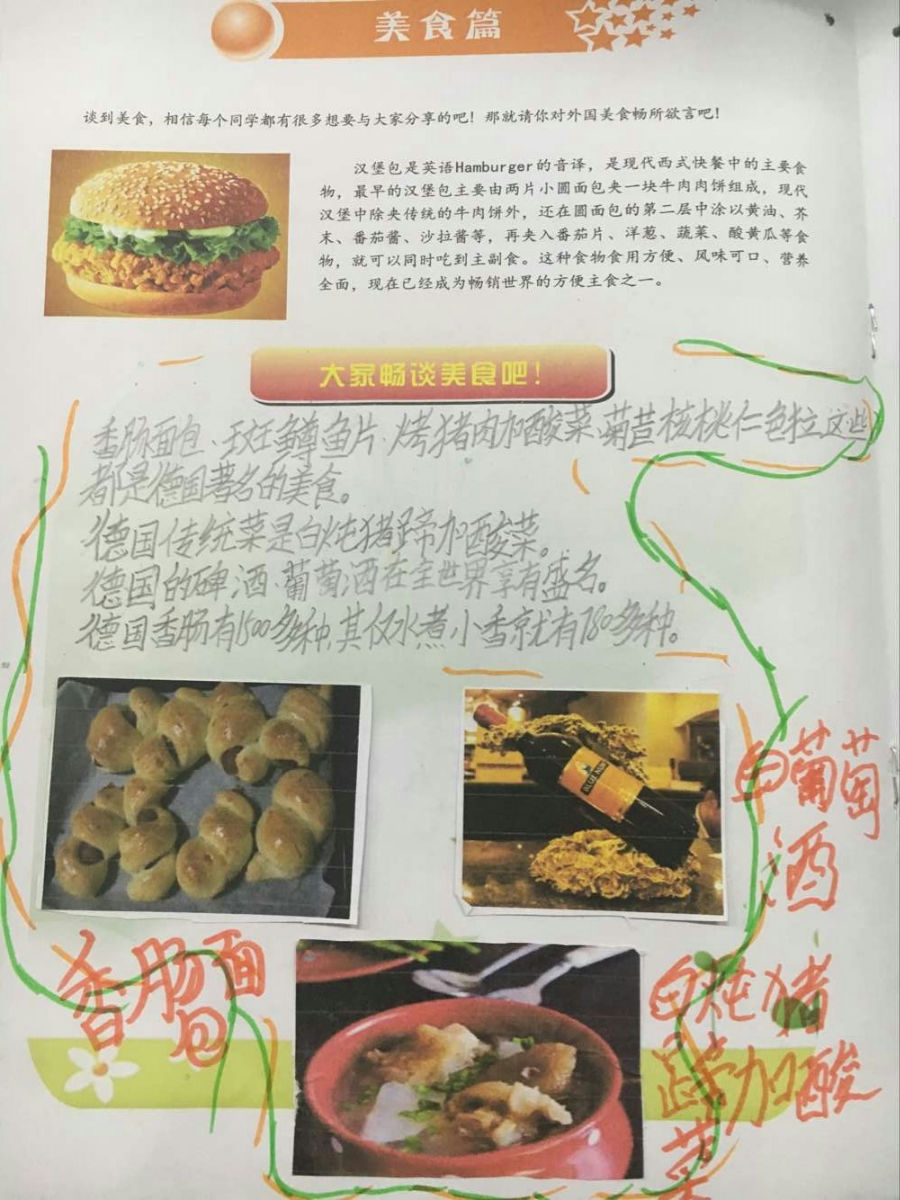 美食篇
谈到美食，相信每个同学都有很多想要与大家分享的吧！那就请你对外国美食畅所欲言吧！
汉堡包是英语Hamburger的音译，是现代西式快餐中的主要食
物，最早的汉堡包主要由两片小圆面包夹一块牛肉肉饼组成，现代
汉堡中除夹传统的牛肉饼外，还在圆面包的第二层中涂以黄油、芥
末、番茄酱、沙拉酱等，再夹入番茄片、洋葱、蔬菜、酸黄瓜等食
物，就可以同时吃到主副食。这种食物食用方便、风味可口、营养
全面，现在已经成为畅销世界的方便主食之一。
大家畅谈美食吧！
香肠面包、斑鳟鱼片、烤猪肉加酸菜、菊苣核桃仁色拉，这些
都是德国著名的美食。
德国传统菜是白炖猪蹄加酸菜。
德国的碑酒、葡萄酒在全世界享有盛名。
德国香肠有1500多种，其仅水煮小香就有780多种。
白葡萄
酒
香肠面
包
白炖猪
蹄加酸
菜